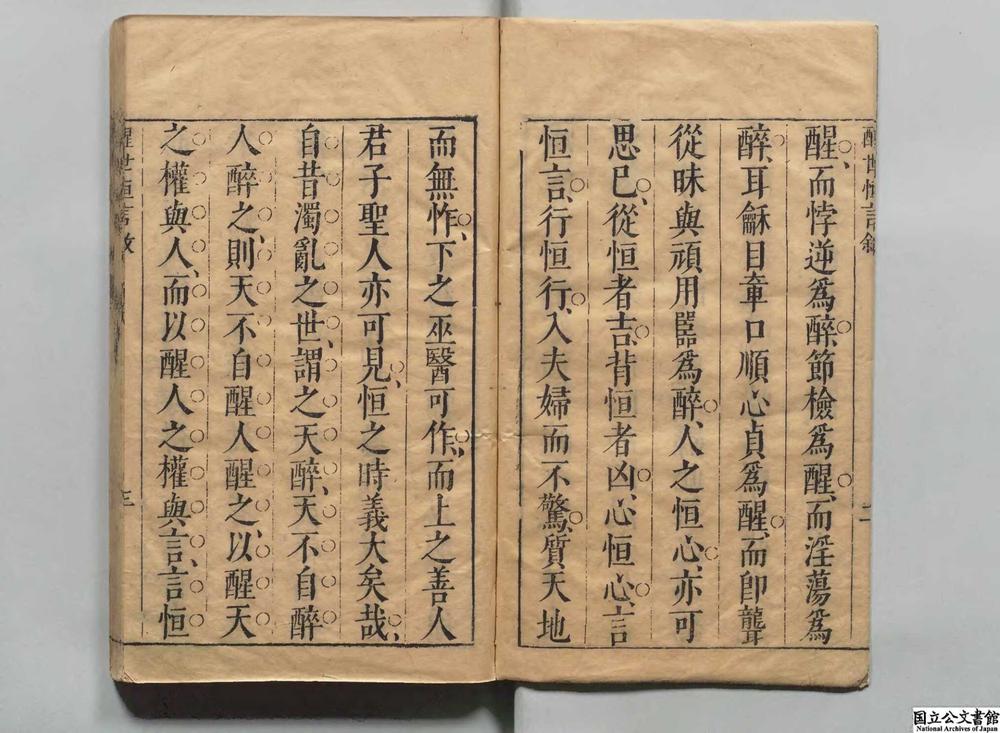 醒世恒言敘
二
醒、而悖逆爲醉、節檢爲醒、而淫蕩爲
醉、耳龢目章口順心貞爲醒、而卽聾
從昧與頑用嚚爲醉、人之恒心、亦可
思已、從恒者吉、背恒者凶、心恒心、言
恒言、行恒行、入夫婦而不驚、質天地
而無怍、下之巫醫可作、而上之善人
君子聖人亦可見、恒之時義大矣哉、
自昔濁亂之世、謂之天醉、天不自醉
人醉之、則天不自醒人醒之、以醒天
之權與人、而以醒人之權與言、言恒
醒世恒言敘
三
国立公文書館
National Archives of Japan